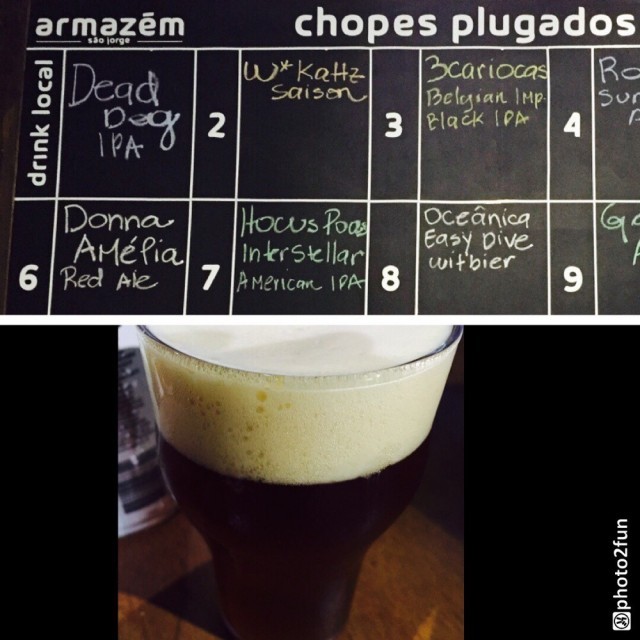 armazém
são jorge
chopes plugados
drink local
Dead
Dog
IPA
2
W*Kattz
Saison
3
3cariocas
Belgian Imp
Black IPA
4
6
Donna
Amélia
Red Ale
7
Hocus Pocus
Interstellar
American IPA
8
Oceânica
Easy Dive
witbier
9
photo2fun